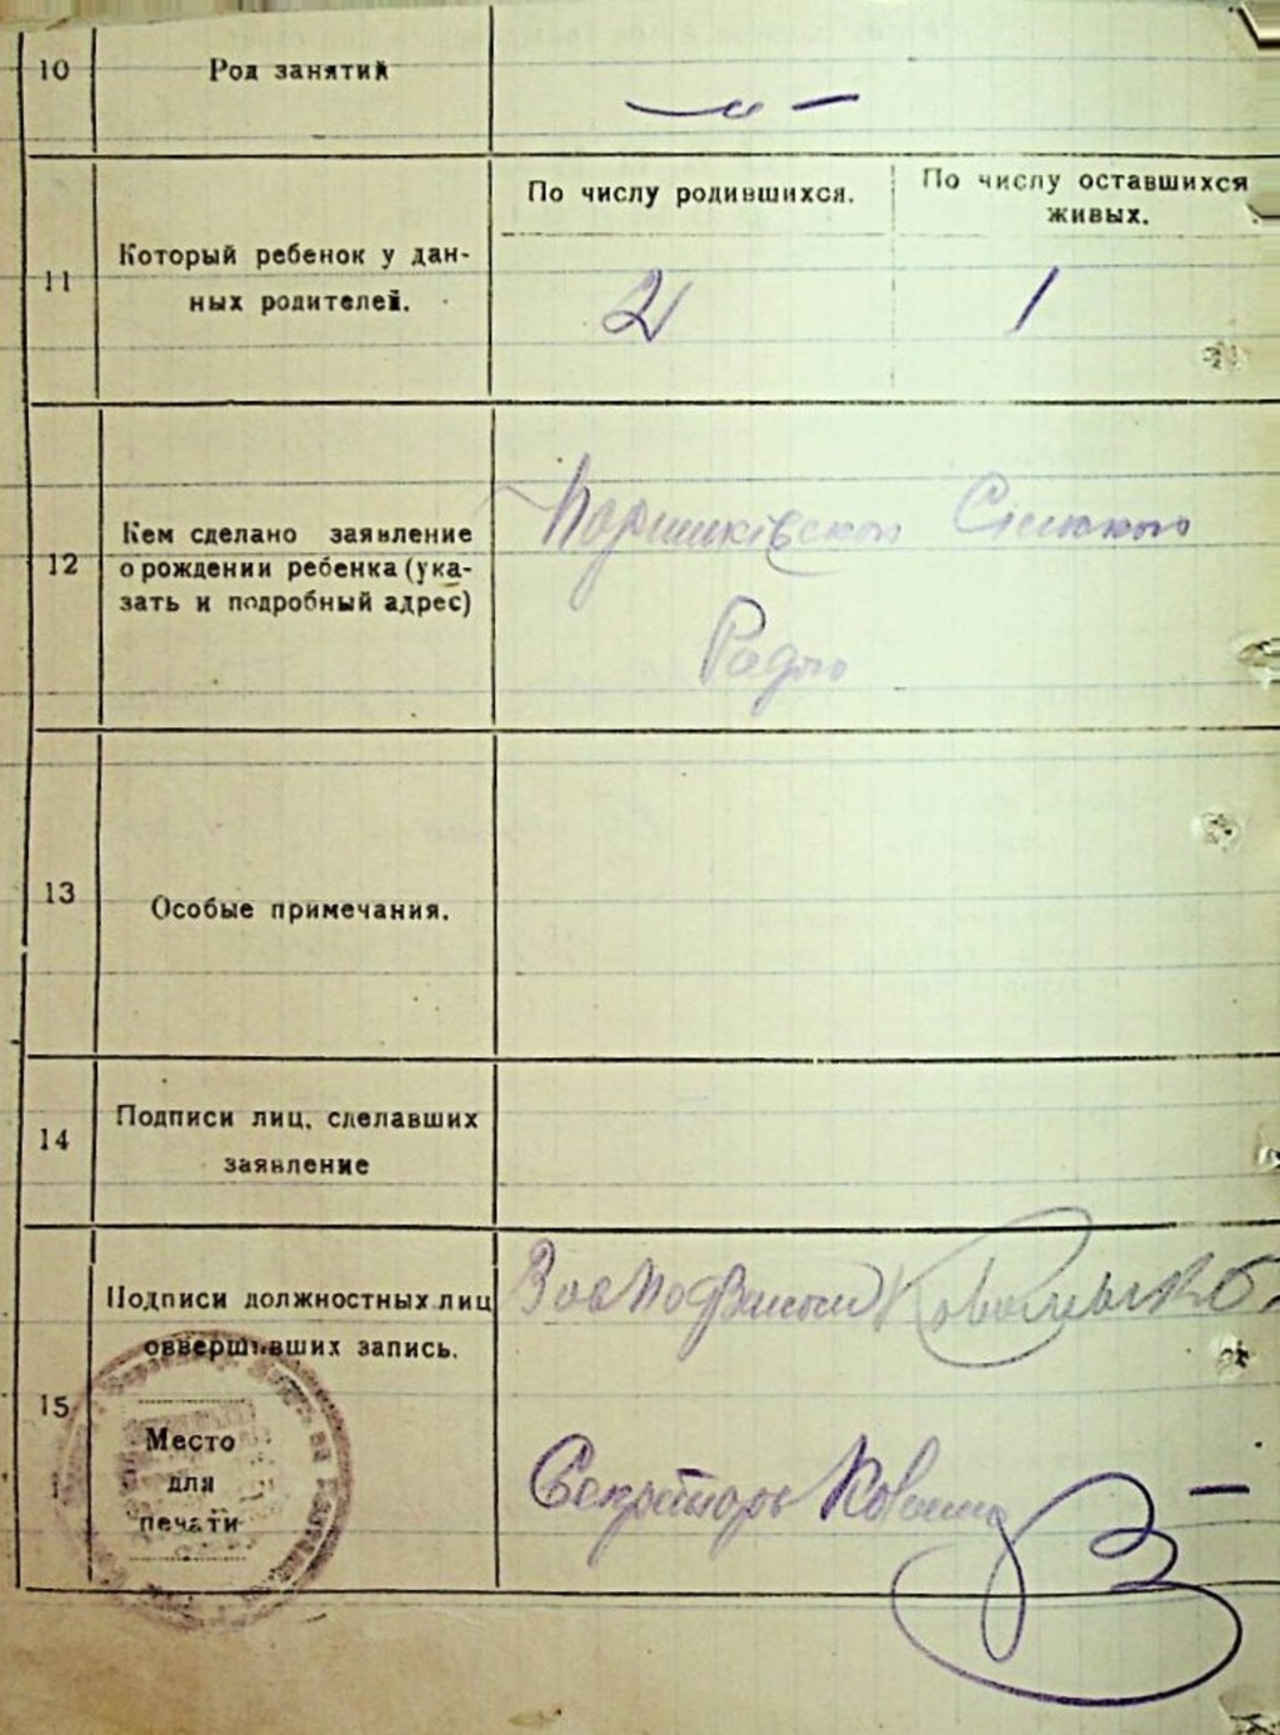 10 Род занятий — „ —
По числу родившихся. По числу оставшихся
живых.
11 Который ребенок у дан-
ных родителей.
2 1
12 Кем сделано заявление
о рождении ребенка (ука-
зать и подробный адрес)
Сільською
Радою
13 Особые примечания.
14 Подписи лиц, сделавших
заявление
15 Подписи должностных лиц
овершивших запись.
Место
для
печати
Секретарь